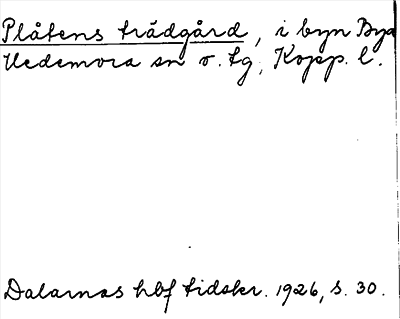 Plåtens trädgård, i byn Bya
Hedemora sn o. tg, Kopp. l.
Dalarnas hbf tidskr. 1926, s. 30.